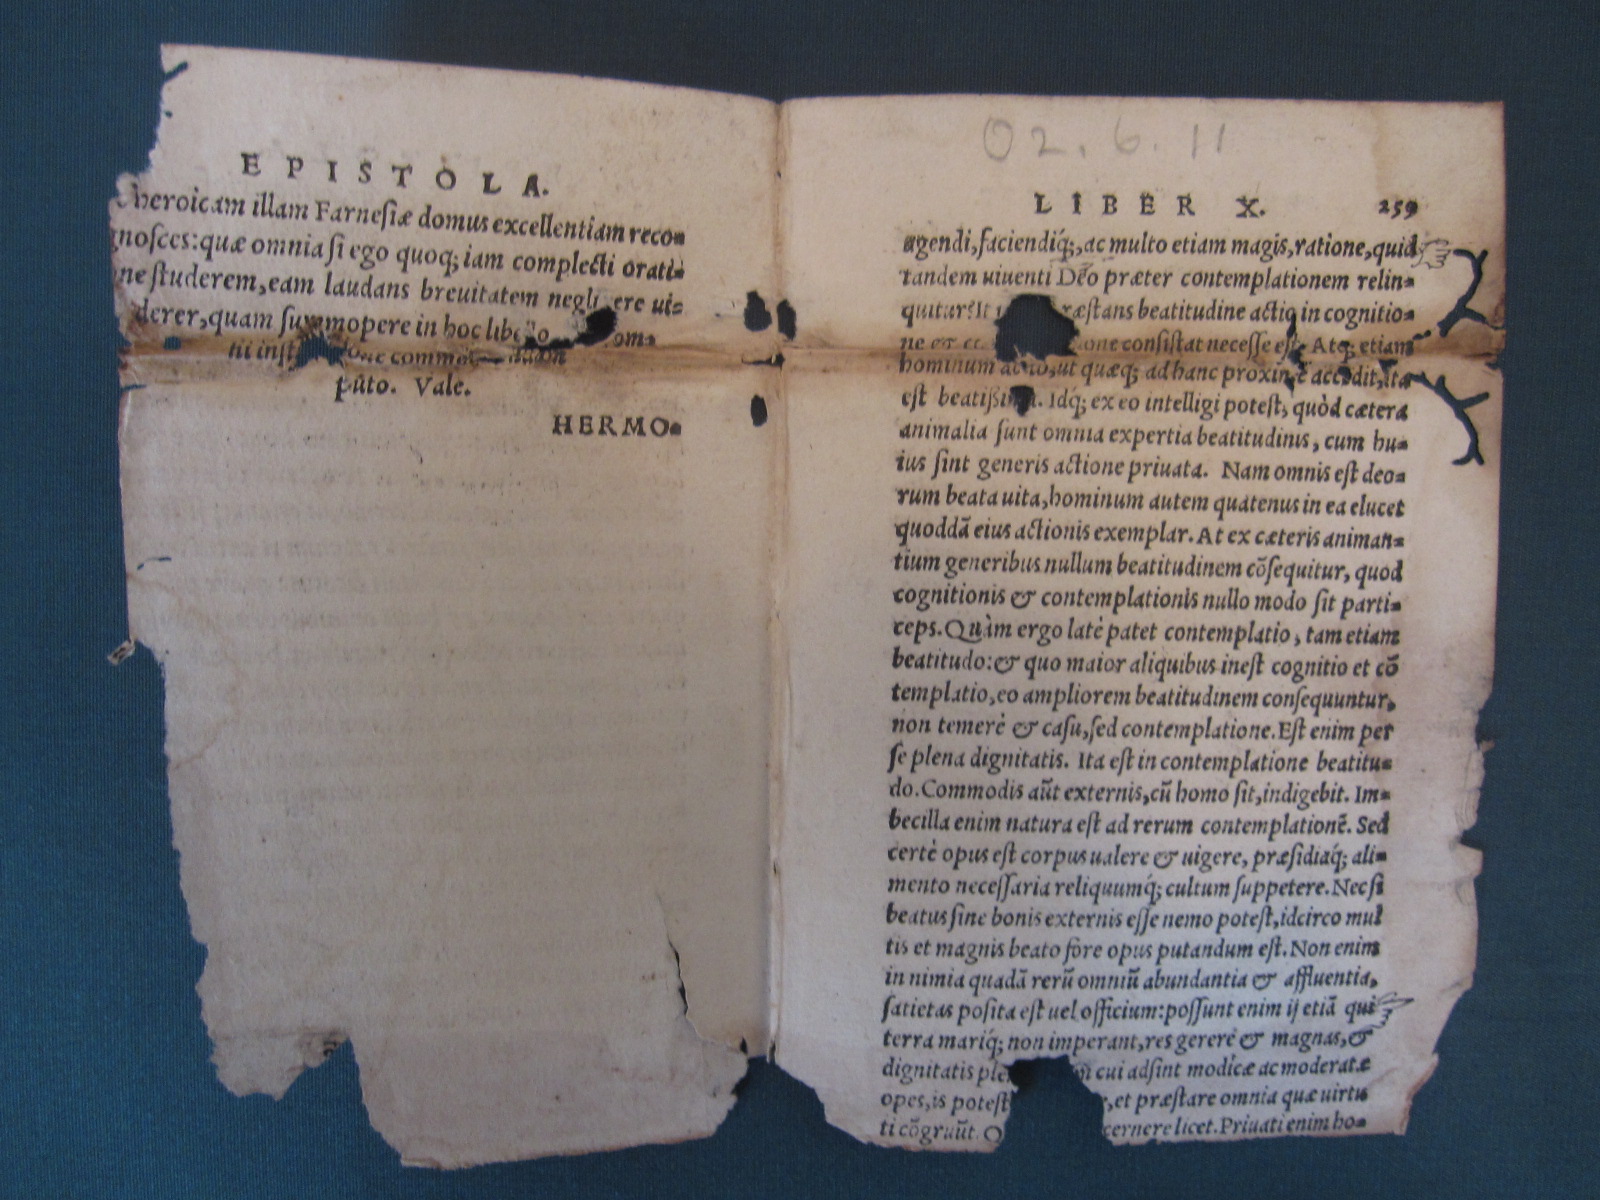 EPISTOLA.
heroicam illam Farnesiæ domus excellentiam reco-
gnosces: quæ omnia si ego quoq; iam complecti orati-
ne studerem, eam laudans breuitatem negli ere ui-
derer, quam summopere in hoc lib om-
puto. Vale.
HERMO-
02.6.11
LIBER X. 259
agendi, faciendiq́;, ac multo etiam magis, ratione, quid
tandem uiuenti Deo præter contemplationem relin-
quitur? It æstans beatitudine actio in cognitio-
ne & one consistat necesse est. Atq; etiam
hominum actio, ut quæq; ad hanc proximè accedit, ita
est beatissima. Idq́; ex eo intelligi potest, quòd cætera
animalia sunt omnia expertia beatitudinis, cum hu-
ius sint generis actione priuata. Nam omnis est deo-
rum beata uita, hominum autem quatenus in ea elucet
quoddã eius actionis exemplar. At ex cæteris animan-
tium generibus nullum beatitudinem cõsequitur, quod
cognitionis & contemplationis nullo modo sit parti-
ceps. Quàm ergo latè patet contemplatio, tam etiam
beatitudo: & quo maior aliquibus inest cognitio et cõ
templatio, eo ampliorem beatitudinem consequuntur,
non temerè & casu, sed contemplatione. Est enim per
se plena dignitatis. Ita est in contemplatione beatitu-
do. Commodis aũt externis, cũ homo sit, indigebit. Im-
becilla enim natura est ad rerum contemplationẽ. Sed
certè opus est corpus ualere & uigere, præsidiaq́; ali-
mento necessaria reliquumq́; cultum suppetere. Nec si
beatus sine bonis externis esse nemo potest, idcirco mul
tis et magnis beato fore opus putandum est. Non enim
in nimia quadã rerũ omniũ abundantia & affluentia,
satietas posita est uel officium: possunt enim ij etiã qui
terra mariq́; non imperant, res gerere & magnas, &
dignitatis ple cui adsint modicæ ac moderatæ
opes, is potest , et præstare omnia quæ uirtu
ti cõgruũt. cernere licet. Priuati enim ho-